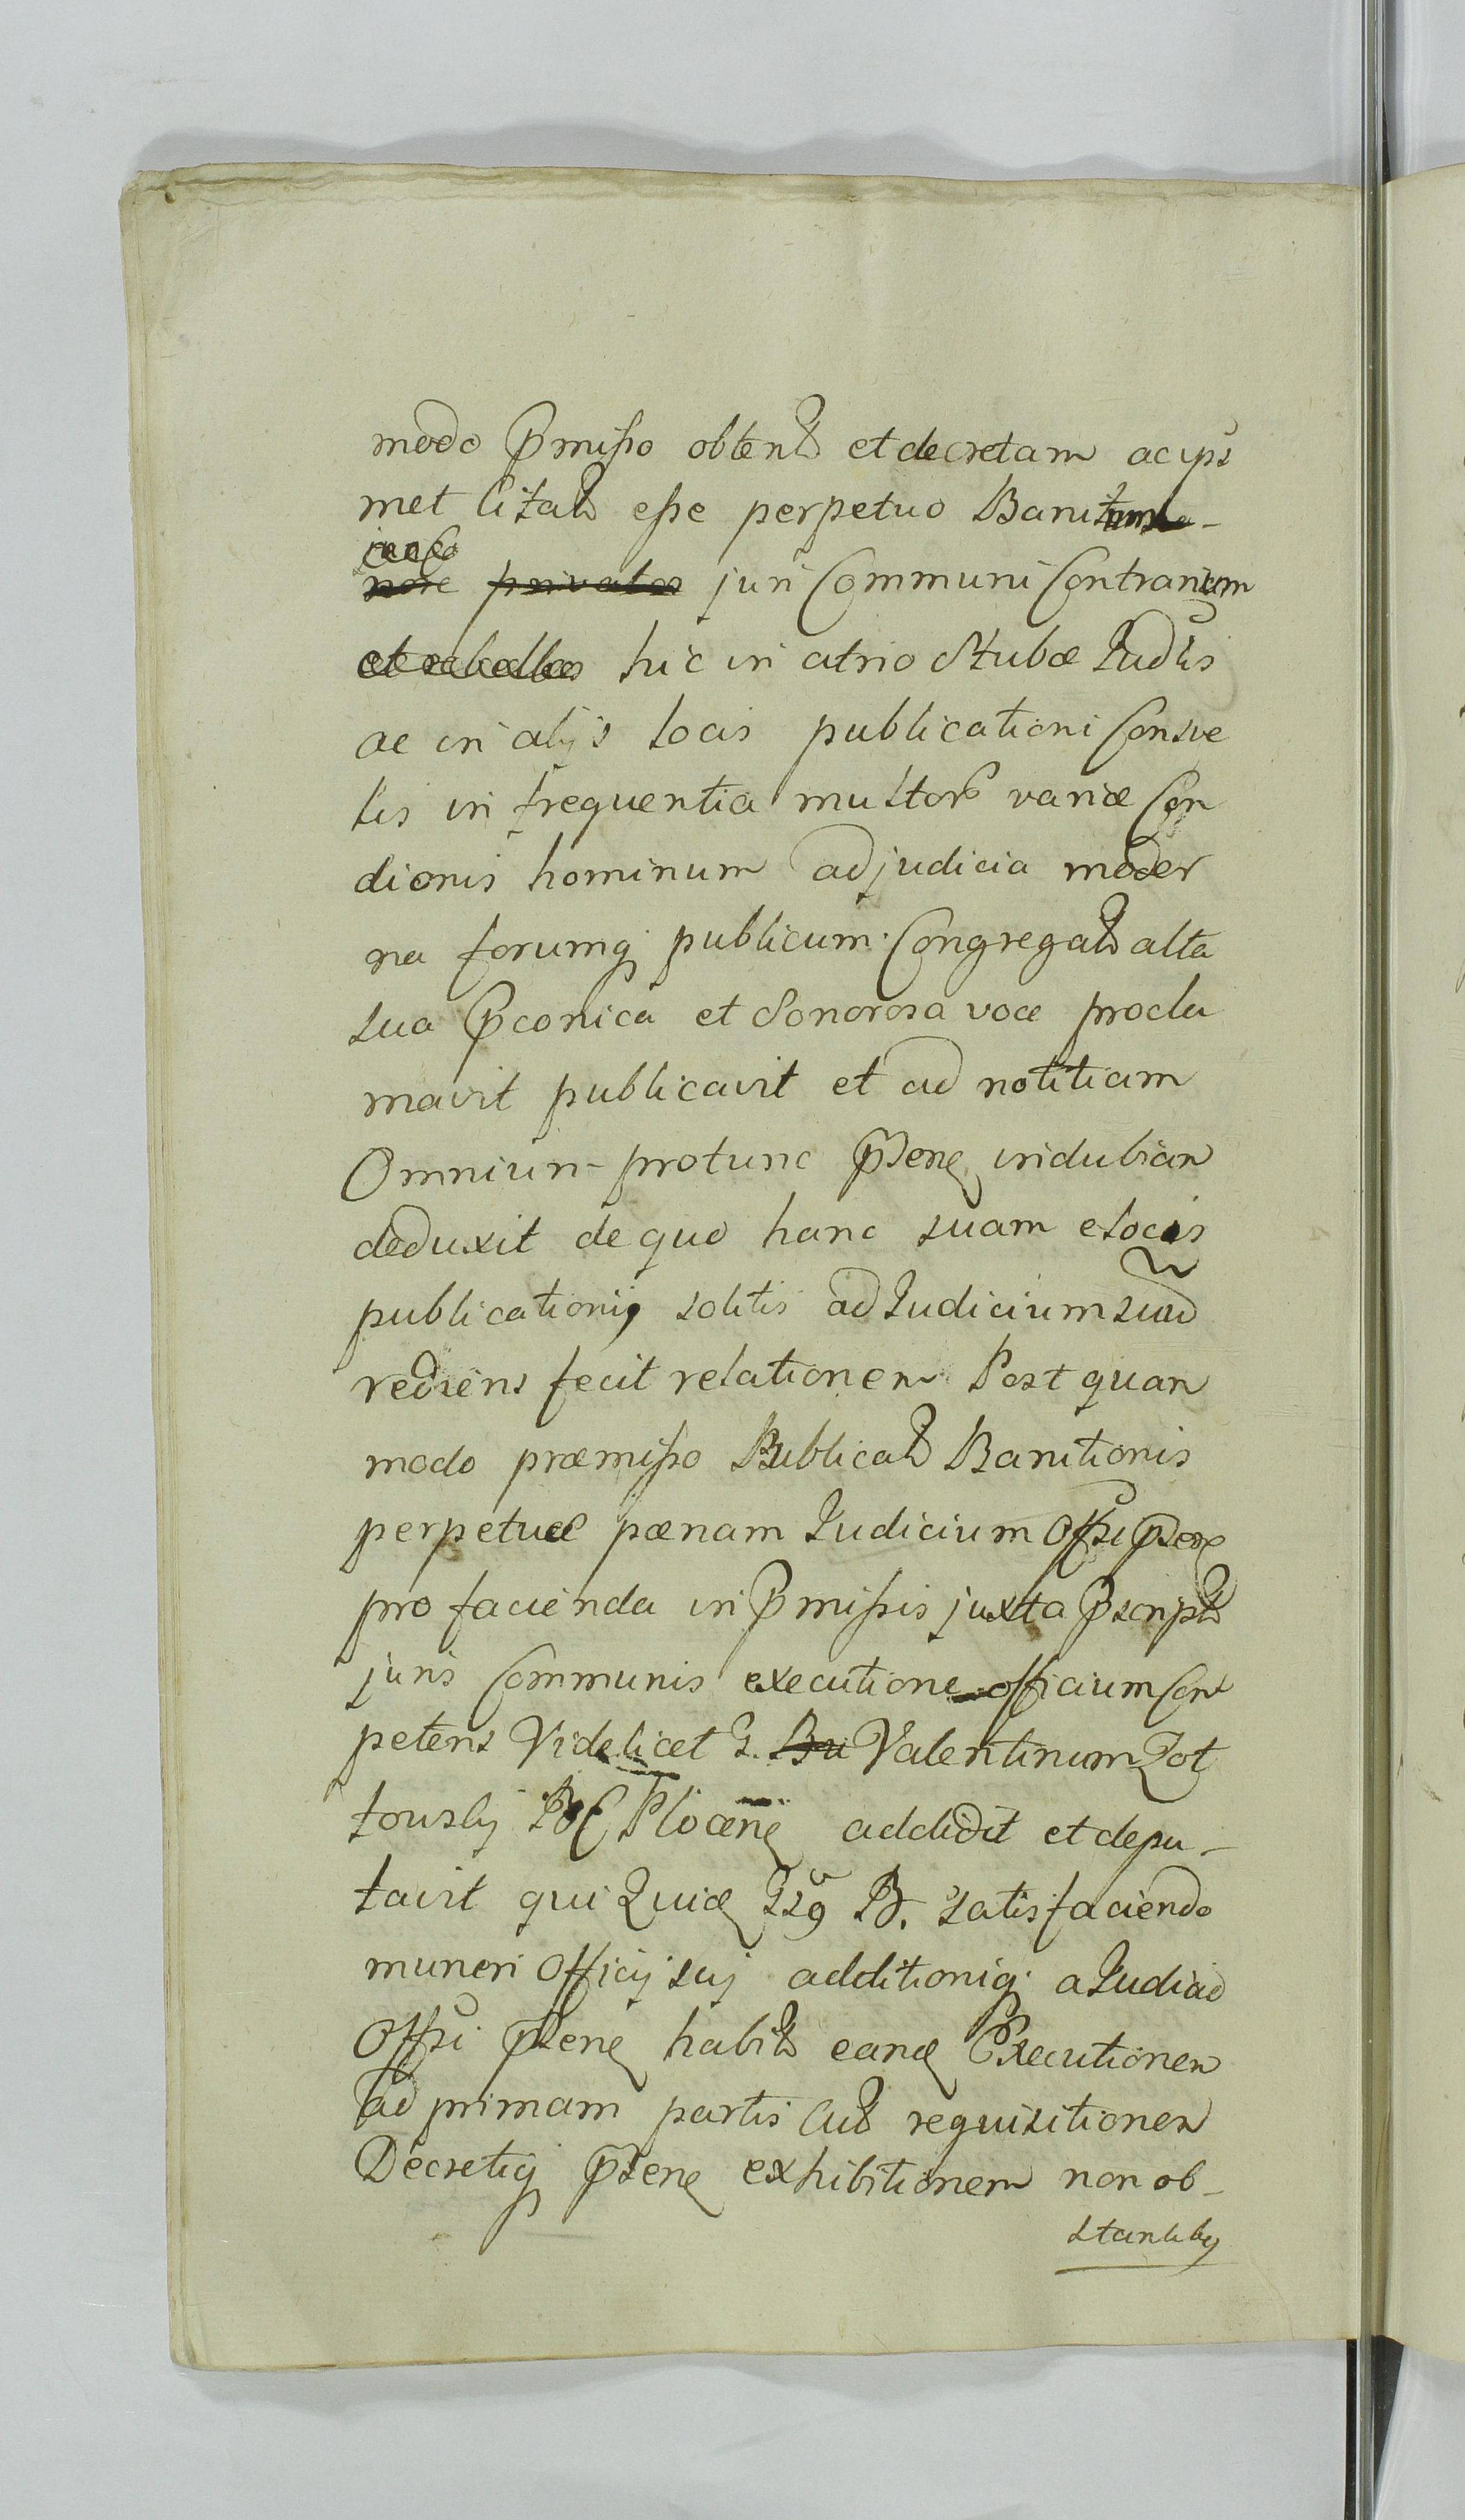 modo p̄misso obtent et decretam ac ips
met Citat esse perpetuo Banitum
juri Communi Contrarium
et rebelles hic in atrio Stubæ Judlis
ac in alijs locis publicationi Consve
tis in frequentia multor variæ Con
dionis hominum ad judicia moder
na forumq publicum Congregat alta
sua p̄conica et Sonorosa voce procla
mavit publicavit et ad notitiam
Omnium protunc p̄sene indubiam
deduxit de quo hanc suam e locis
publicationiq solitis ad Judicium suud
rediens fecit relationem Post quam
modo præmisso Publicat Banitionis
perpetuæ pænam Judicium Offsi p̄sene
pro facienda in p̄missis juxta p̄script
juris Communis executione officium Com
petens Videlicet G. Bu Valentinum Zot
towsky BC Plocene addidit et depu-
tavit qui Quid Gsq B. satisfaciendo
muneri Officij suj additioniq a Judicio
Offsi p̄sene habit eand Executionem
ad primam partis Cuis requisitionem
Decretiq p̄sene exhibitionem non ob-
stantibq